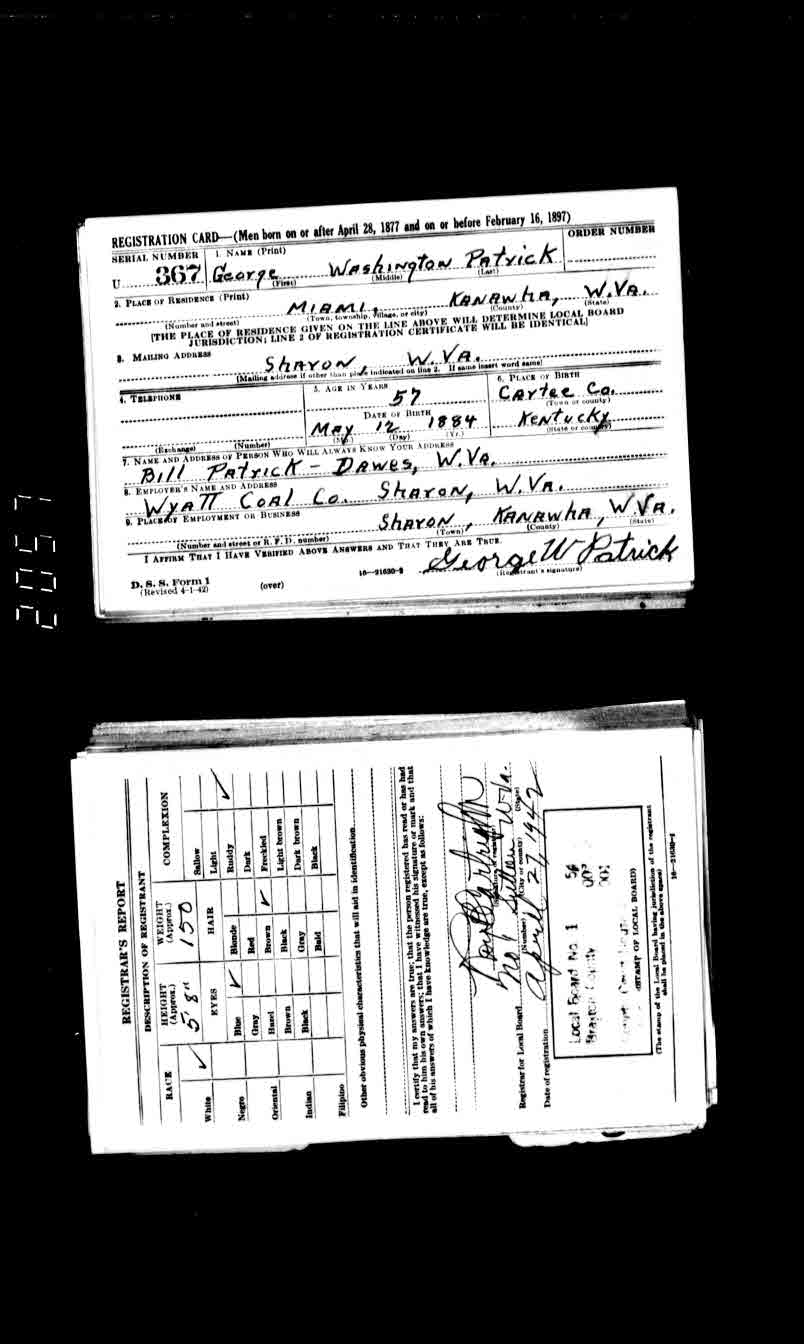 REGISTRATION CARD—(Men born on or after April 28, 1877 and on or before February 16, 1897)
SERIAL NUMBER 1. NAME (Print) ORDER NUMBER
U 367 George Washington Patrick
(First) (Middle) (Last)
2. PLACE OF RESIDENCE (Print)
MIAMI, KANAWHA, W.VA.
(Number and street) (Town, township, village, or city) (County) (State)
[THE PLACE OF RESIDENCE GIVEN ON THE LINE ABOVE WILL DETERMINE LOCAL BOARD
JURISDICTION; LINE 2 OF REGISTRATION CERTIFICATE WILL BE IDENTICAL]
3. MAILING ADDRESS
SHARON, W.VA.
(Mailing address if other than place indicated on line 2. If same insert word same)
4. TELEPHONE 5. AGE IN YEARS 6. PLACE OF BIRTH
57 Cartee Co.
(Town or county)
DATE OF BIRTH
May 12 1884 Kentucky
(Exchange) (Number) (Mo.) (Day) (Yr.) (State or country)
7. NAME AND ADDRESS OF PERSON WHO WILL ALWAYS KNOW YOUR ADDRESS
Bill Patrick - Dawes, W.Va.
8. EMPLOYER'S NAME AND ADDRESS
Wyatt Coal Co. Sharon, W.Va.
9. PLACE OF EMPLOYMENT OR BUSINESS
Sharon, Kanawha, W.Va.
(Number and street or R. F. D. number) (Town) (County) (State)
I AFFIRM THAT I HAVE VERIFIED ABOVE ANSWERS AND THAT THEY ARE TRUE.
George W Patrick
D. S. S. Form 1 (over) 16—21630-2 (Registrant's signature)
(Revised 4-1-42)
2057
REGISTRAR'S REPORT
DESCRIPTION OF REGISTRANT
RACE HEIGHT (Approx.) WEIGHT (Approx.) COMPLEXION
5' 8" 150
EYES HAIR
White ✓ Blue ✓ Blonde Sallow
Light
Negro Gray Red Ruddy ✓
Dark
Oriental Hazel Brown ✓ Freckled
Brown Black Light brown
Indian Black Gray Dark brown
Filipino Bald Black
Other obvious physical characteristics that will aid in identification
I certify that my answers are true; that the person registered has read or has had
read to him his own answers; that I have witnessed his signature or mark and that
all of his answers of which I have knowledge are true, except as follows:
Registrar for Local Board No 1 Sutton W.Va.
(Number) (City or county) (State)
Date of registration April 27, 1942
Local Board No. 1 56
Braxton County 007
001
(STAMP OF LOCAL BOARD)
(The stamp of the Local Board having jurisdiction of the registrant
shall be placed in the above space)
16—21630-1